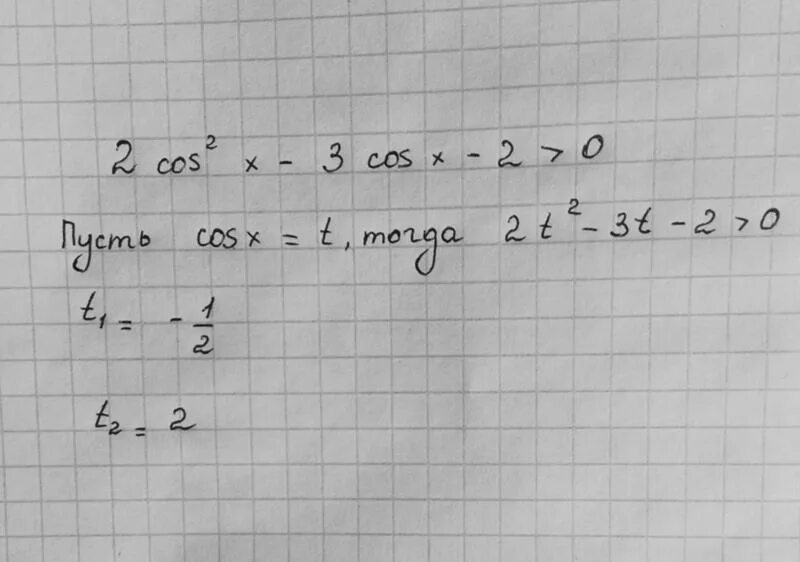 2 cos² x - 3 cos x - 2 > 0
Пусть cos x = t, тогда 2t² - 3t - 2 > 0
t₁ = - 1/2
t₂ = 2